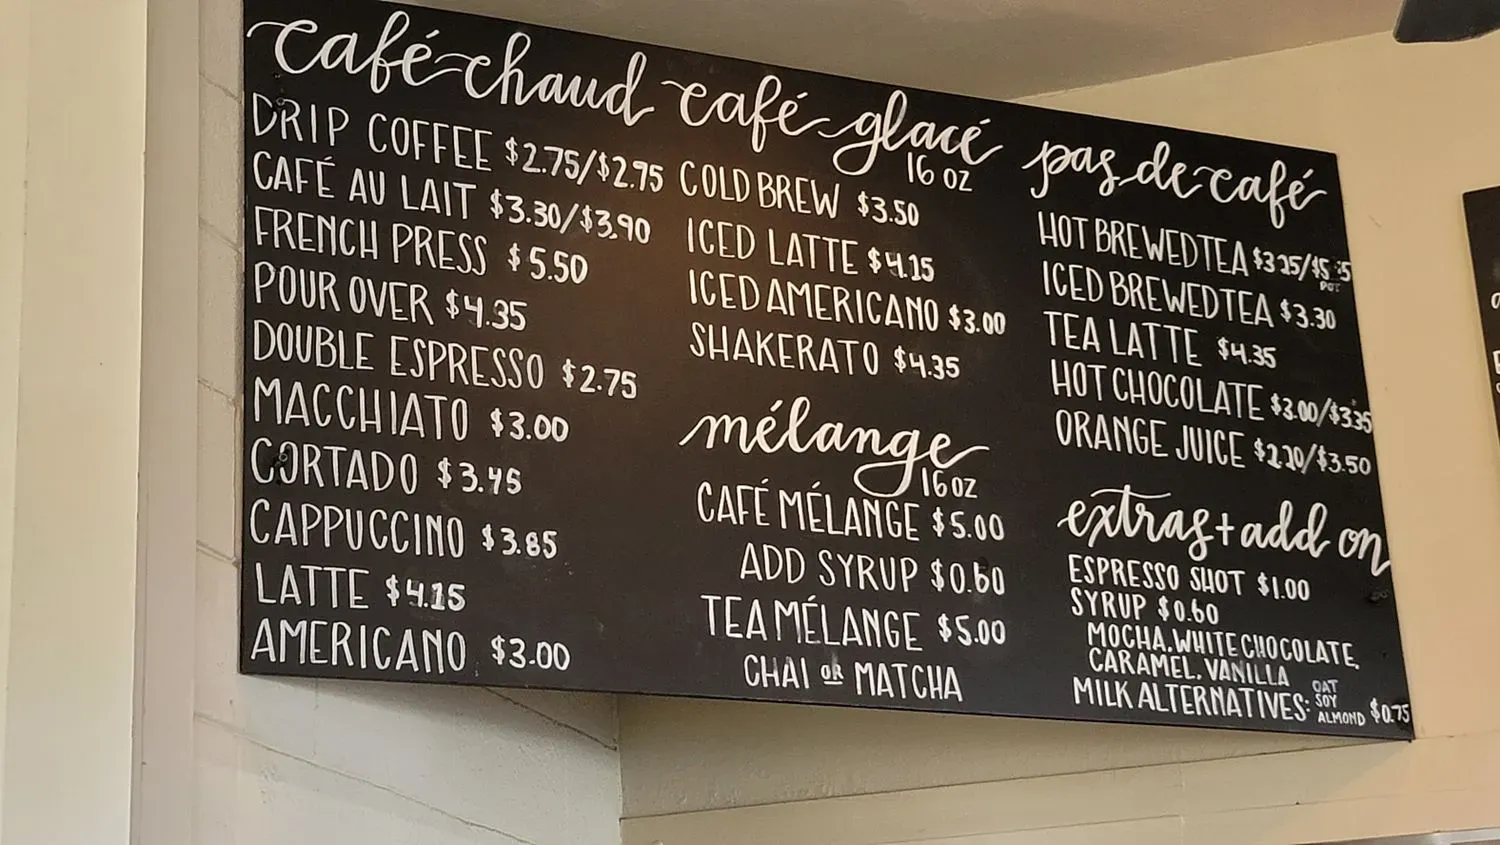 café chaud
DRIP COFFEE $2.75/$2.75
CAFÉ AU LAIT $3.30/$3.90
FRENCH PRESS $5.50
POUR OVER $4.35
DOUBLE ESPRESSO $2.75
MACCHIATO $3.00
CORTADO $3.45
CAPPUCCINO $3.85
LATTE $4.15
AMERICANO $3.00
café glacé
16 OZ
COLD BREW $3.50
ICED LATTE $4.15
ICED AMERICANO $3.00
SHAKERATO $4.35
mélange
16 OZ
CAFÉ MÉLANGE $5.00
ADD SYRUP $0.60
TEA MÉLANGE $5.00
CHAI OR MATCHA
pas de café
HOT BREWED TEA
POT
ICED BREWED TEA $3.30
TEA LATTE $4.35
HOT CHOCOLATE $3.00/$3.35
ORANGE JUICE $2.20/$3.50
extras + add on
ESPRESSO SHOT $1.00
SYRUP $0.60
MOCHA, WHITE CHOCOLATE,
CARAMEL, VANILLA
MILK ALTERNATIVES: OAT
SOY
ALMOND $0.75